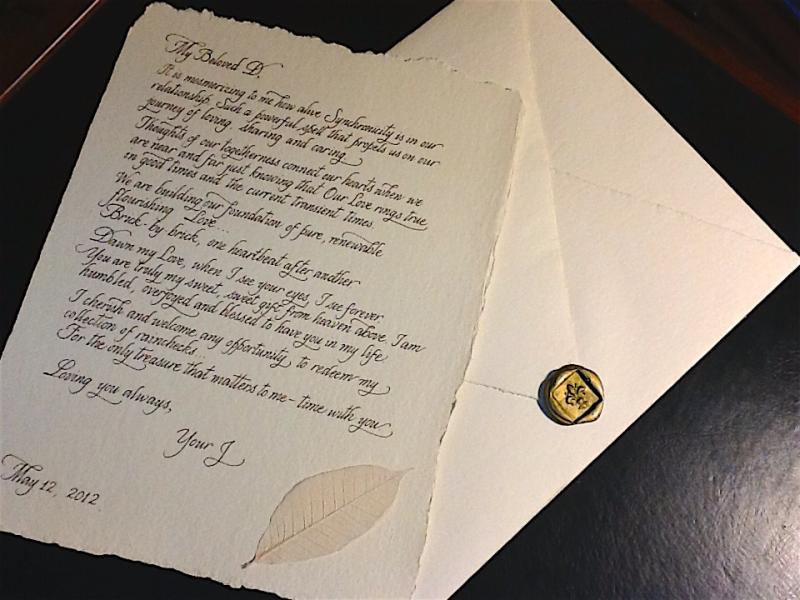 My Beloved D,
It is mesmerizing to me how alive Synchronicity is in our
relationship. Such a powerful spell that propels us on our
journey of loving, sharing and caring.
Thoughts of our togetherness connect our hearts when we
are near and far just knowing that Our Love rings true
in good times and the current transient times.
We are building our foundation of pure, renewable
flourishing Love...
Brick-by brick, one heartbeat after another
Dawn my Love, when I see your eyes, I see forever
You are truly my sweet, sweet gift from heaven above. I am
humbled, overjoyed and blessed to have you in my life
I cherish and welcome any opportunity to redeem my
collection of rainchecks...
For the only treasure that matters to me - time with you
Loving you always,
Your J
May 12, 2012